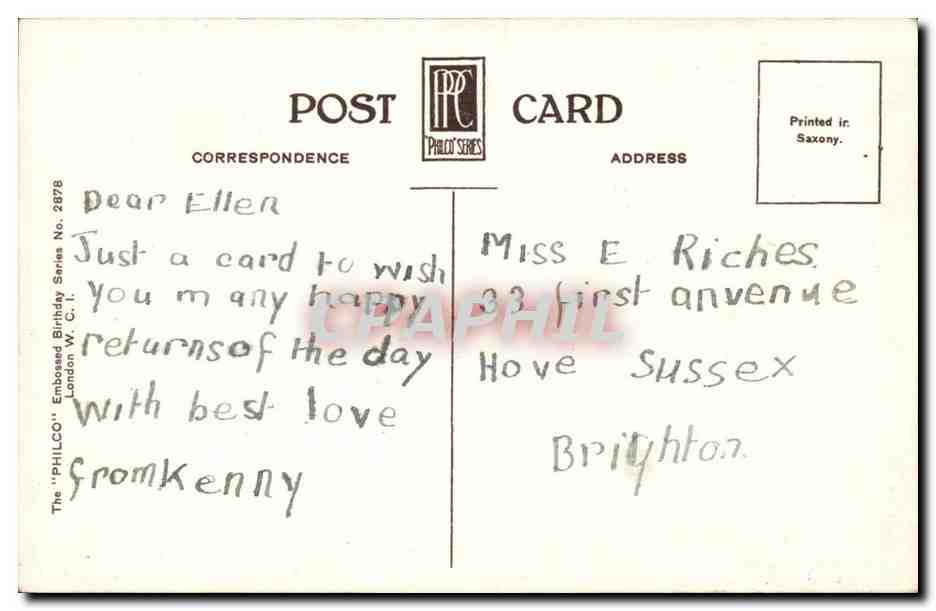 POST CARD
PPC
"PHILCO" SERIES
Printed in
Saxony.
CORRESPONDENCE
ADDRESS
The "PHILCO" Embossed Birthday Series No. 2878
London W. C. I.
Dear Ellen
Just a card to wish
you many happy
returns of the day
with best love
from Kenny
Miss E Riches
33 first anvenue
Hove Sussex
Brighton
CPAPHIL